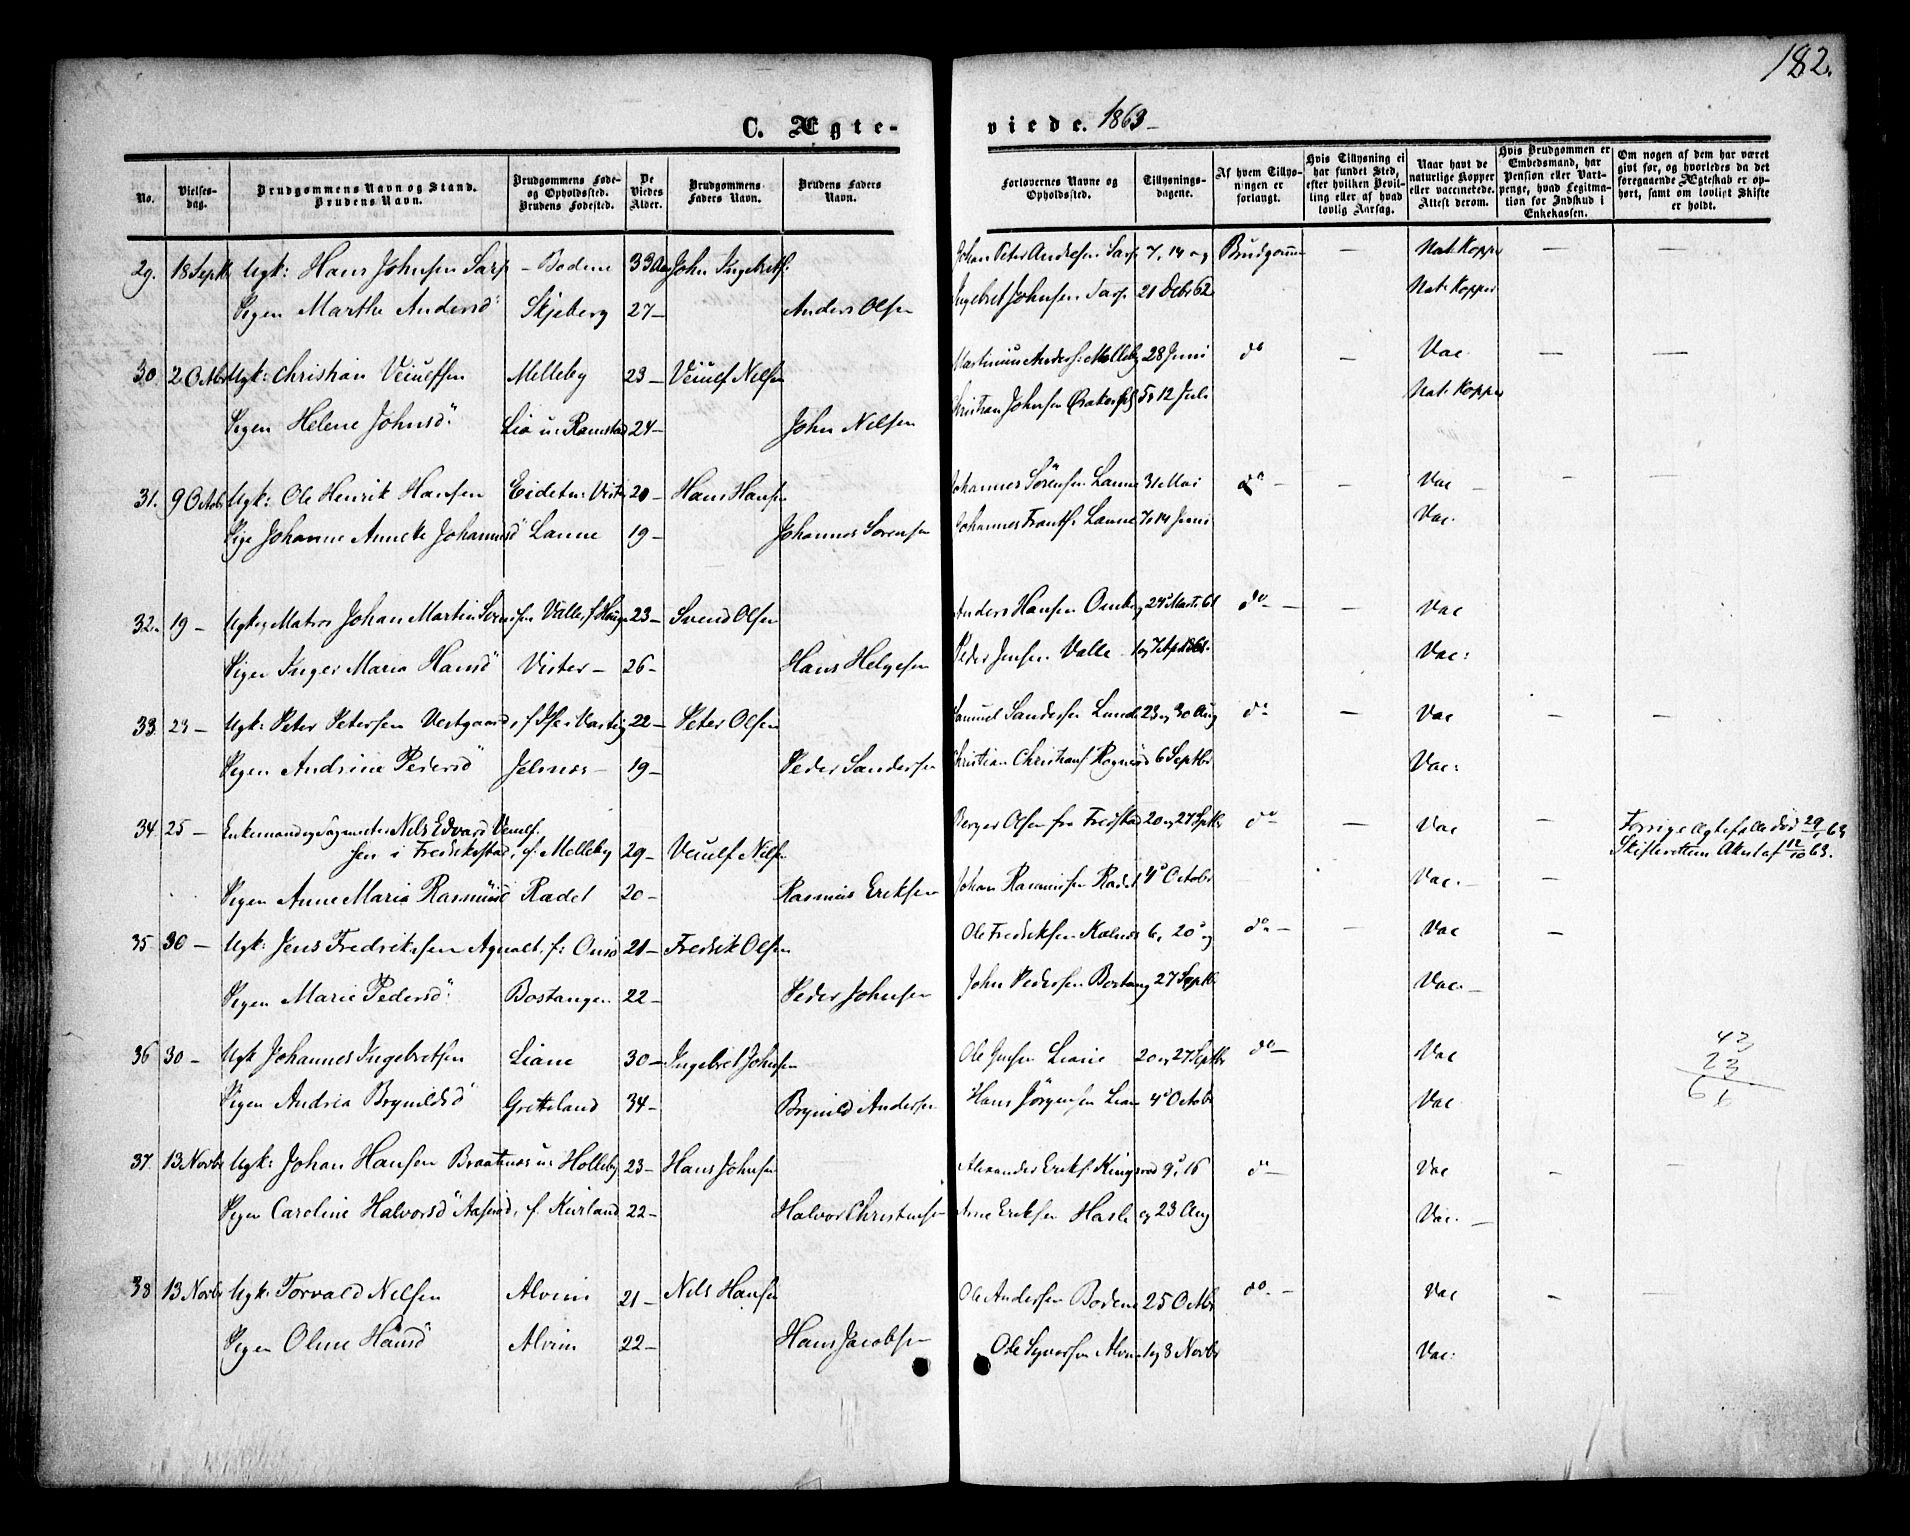 182.
C. Ægte- viede. 1863
No.
Vielses-dag.
Brudgommens Navn og Stand. Brudens Navn.
Brudgommens Føde- og Opholdssted. Brudens Fødested.
De Viedes Alder.
Brudgommens Faders Navn.
Brudens Faders Navn.
Forlovernes Navne og Opholdssted.
Tillysnings-dagene.
Af hvem Tillysningen er forlangt.
Hvis Tillysning ei har fundet Sted, efter hvilken Bevilling eller af hvad lovlig Aarsag.
Naar havt de naturlige Kopper eller vaccinerede. Attest derom.
Hvis Brudgommen er Embedsmand, har Pension eller Vartpenge, hvad Legitimation for Indskud i Enkekassen.
Om nogen af dem har været gift før, og hvorledes da det foregaaende Ægteskab er ophørt, samt om lovligt Skifte er holdt.
29. 18 Septb Ugk: Hans Johnsen Sarp - Bodene 33 Aar John Ingebretsz: Johan Peter Andresen Sarp 7, 14 og Brudgommen — Nat. Kopper — —
Pigen Marthe Andersd: Skjeberg 27 — Anders Olsen Ingebret Johnsen Sarp 21 Debr 62 Nat: Kopper
30. 2 Octbr Ugk: Christian Veiulfsen Melleby 23 — Veiulf Nilsen Martinius Anders: Melleby 28 Juni do — Vac. — —
Pigen Helene Johnsd: Lia u: Ramstad 24 — John Nilsen Christian Johnsen 5 12 Juli Nat: Kopper
31. 9 Octob Ugk: Ole Henrik Hansen Eidet u: Vister 20 — Hans Hansen Johannes Sörensen Lanne 31 Mai do — — Vac — — —
Pige Johanne Annette Johannesd Lanne 19 — Johannes Sorensen Johannes Frantss. Lanne 7, 14 Juni Vac.
32. 19 — Ugk, Matros Johan Martin Svendsen Valle, f Haugen 23 — Svend Olsen Anders Hansen 24 Marts 61 do — — Vac
Pigen Inger Maria Hansd Vister — 26 — Hans Helgesen Peder Jensen Valle 1 og 7 April 61. Vac:
33. 23 — Ugk: Peter Petersen Vestgaard, 22 — Peter Olsen Samuel Sandersen Lunde 23 og 30 Aug do — Vac — —
Pigen Andrine Pedersd Jelsnes — 19 — Peder Sandersen Christian Christians 6 Septbr Vac:
34. 25 — Enkemand og Nils Edvard Veiulf-
sen i Fredrikstad, f. Melleby 29 — Veiulf Nilsen Berger Olsen fra Fredstad 20 og 27 Septbr do — Vac — Forrige Ægtefælle død 29/ 63 Skifterettens Attest af 12/10 63.
Pigen Anne Maria Rasmusd Radet 20 — Rasmus Eriksen Johan Rasmussen Radet 4 Octobr Vac. — —
35. 30 — Ugk: Jens Fredriksen Agnalt, f: Onsö 21 — Fredrik Olsen Ole Fredriksen Kalnæs 6, 20 og do — — Vac —
Pigen Marie Pedersd: Bostangen 22 — Peder Johnsen John Pedersen Bostang 27 Septbr Vac. —
36 30 — Ugk Johannes Ingebretsen Liane 30 — Ingebret Johnsen Ole Jensen Liane 20 og 27 Septbr do — Vac 42
23
66
Pigen Andrea Brynildsd Gretteland 34 — Brynild Andersen Hans Jörgensen Liane 4 Octobr Vac
37. 13 Novbr Ugk: Johan Hansen Braatnes u: Holleby 23 — Hans Johnsen Alexander Eriks. Kingsrød 9, 16 do — Vac — —
Pigen Caroline Halvorsd Aasen, f. Kurland 22 — Halvor Christensen Arne Eriksen Hasle og 23 Aug Vac. —
38 13 Novbr Ugk: Torvald Nilsen Alvim 21 — Nils Hansen Ole Andersen Bodene 25 Octbr do. — Vac — —
Pigen Oline Hansd Alvim 22 — Hans Jacobsen Ole Syversen Alvim 1 og 8 Novbr Vac: